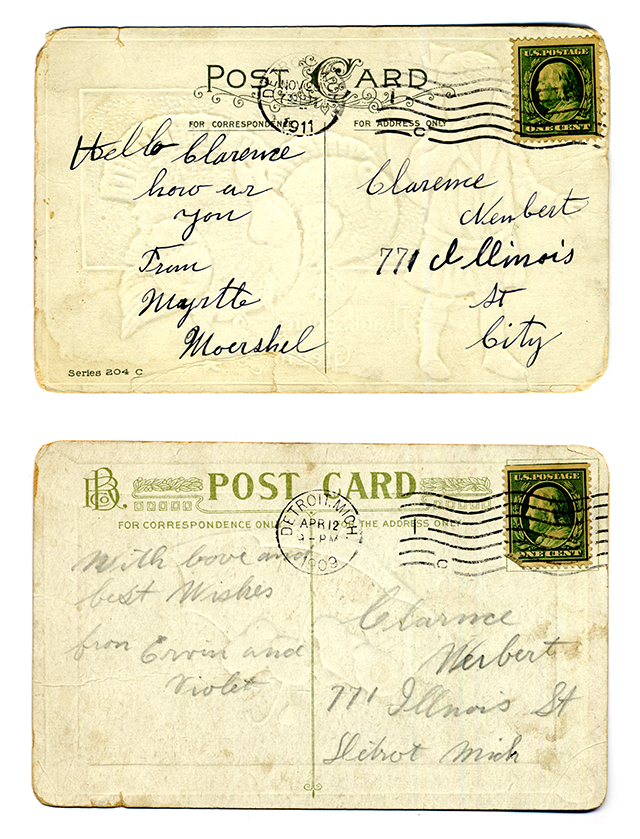 POST CARD
NOV
1911
U.S.POSTAGE
ONE CENT
FOR CORRESPONDENCE
FOR ADDRESS ONLY
C
Hello Clarence
how ar
you
From
Myrtle
Moershel
Clarence
Newbert
771 Illinois
St
City
Series 204 C
POST CARD
FOR CORRESPONDENCE ONLY
FOR THE ADDRESS ONLY
DETROIT, MICH.
APR 12
9-PM
1909
C
U.S.POSTAGE
ONE CENT
With Love and
best Wishes
from Ervin and
Violet
Clarnce
Werbert
771 Illnois St
Detrot Mich